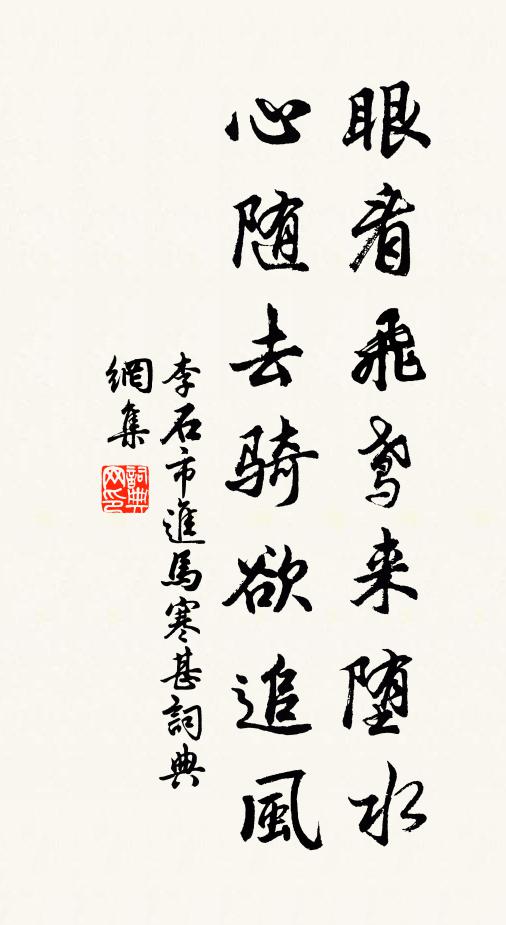 眼看飛鳶来堕水
心随去骑欲追風
李石市進馬寒甚詞典
網集
詞典
网印